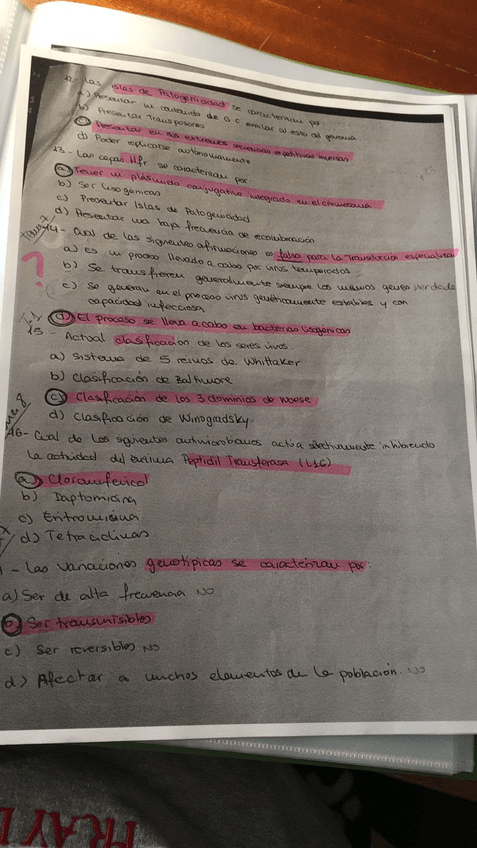 12- Las islas de Patogenicidad se caracterizan por
a) Presentar un contenido de G C similar al resto del genoma
b) Presentar Transposones
c) Presentar en sus extremos secuencias repetitivas inversas
d) Poder replicarse autónomamente
13- Las cepas Hfr se caracterizan por
a) Tener un plásmido conjugativo integrado en el cromosoma
b) Ser lisogénicas
c) Presentar Islas de Patogenicidad
d) Presentar una baja frecuencia de recombinación
14- Cual de las siguientes afirmaciones es falsa para la Transducción especializada
a) es un proceso llevado a cabo por virus temperados
b) Se transfieren generalmente siempre los mismos genes verdade
?
c) Se generan en el proceso virus genéticamente estables y con
capacidad infecciosa
d) El proceso se lleva a cabo en bacterias lisogénicas
15- Actual clasificación de los seres vivos
a) Sistema de 5 reinos de Whittaker
b) Clasificación de Baltimore
c) Clasificación de los 3 dominios de Woese
d) Clasificación de Winogradsky
16- Cual de los siguientes antimicrobianos actúa selectivamente inhibiendo
la actividad del enzima Peptidil Transferasa (L16)
a) Cloranfenicol
b) Daptomicina
c) Eritromicina
d) Tetraciclinas
- Las variaciones genotípicas se caracterizan por:
a) Ser de alta frecuencia NO
b) Ser transmisibles
c) Ser reversibles NO
d) Afectar a muchos elementos de la población. NO